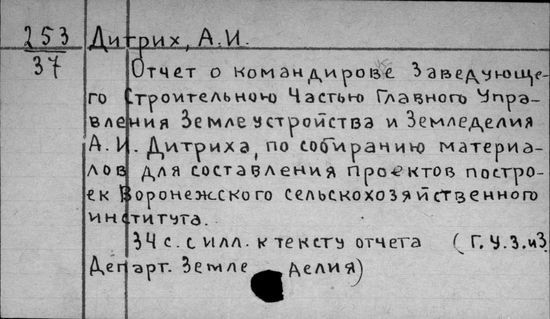 253 Дитрих, А.И.
37 Отчет о командировке Заведующе-
го Строительною Частью Главного Упра-
вления Землеустройства и Земледелия
А.И. Дитриха, по собиранию материа-
лов для составления проектов построек
ек Воронежского сельскохозяйственного
института.
34 с. с илл. к тексту отчета (Г.У.З.иЗ
Департ. Земле делия)